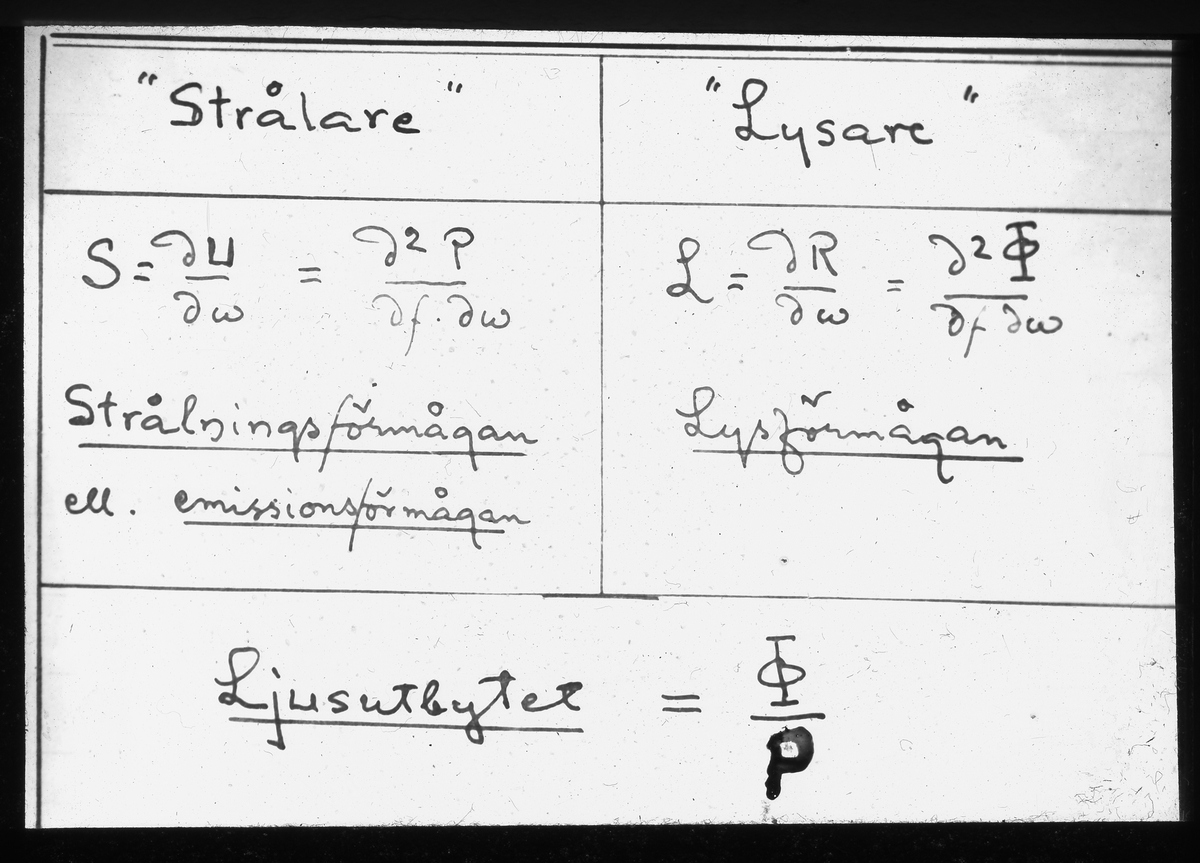 "Strålare"
"Lysare"
S = ∂U/∂ω = ∂²P/∂f·∂ω
L = ∂R/∂ω = ∂²Φ/∂f ∂ω
Strålningsförmågan
ell. emissionsförmågan
Lysförmågan
Ljusutbytet = Φ/P